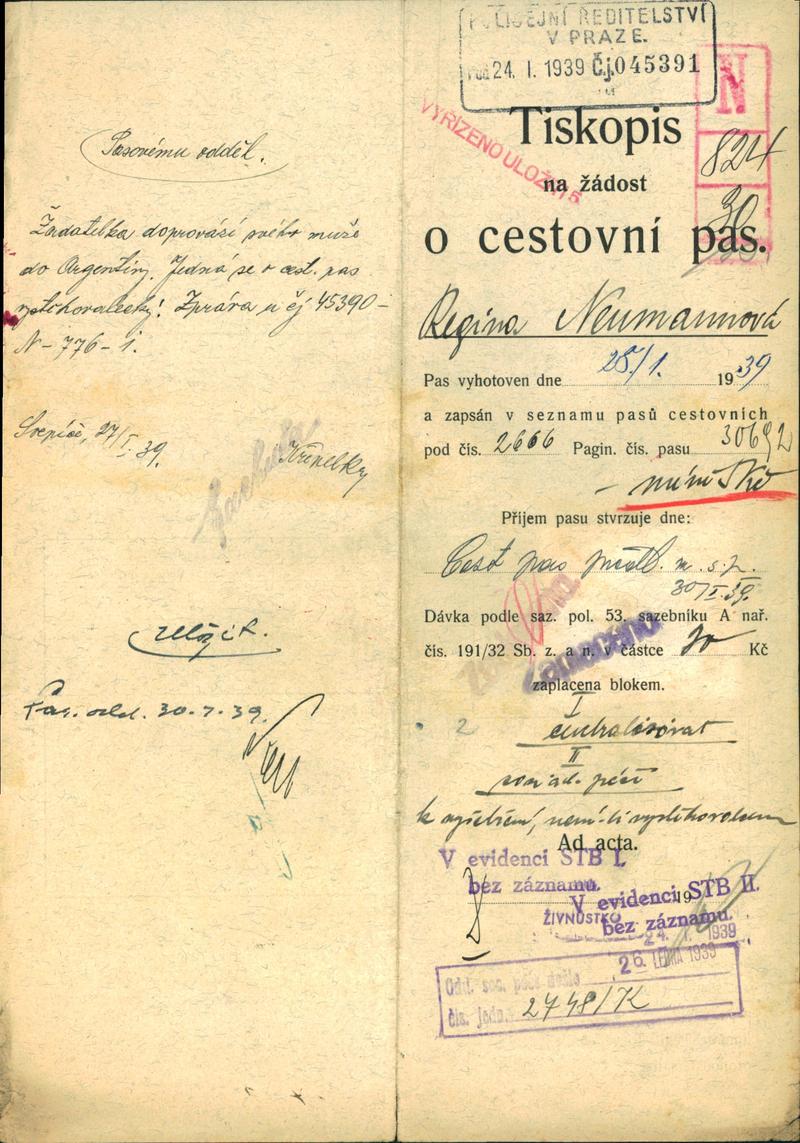 Pasovému odděl.
Žadatelka doprovází svého muže
do Argentiny. Jedná se o cest. pas
vystěhovalecký! Zpráva u čj 45390-
N-776-1.
27/I. 39.
Křepelky
Uložit.
Pas. odd. 30.1.39.
POLICEJNÍ ŘEDITELSTVÍ
V PRAZE.
24. I. 1939 Čj. 045391
N
824
30
VYŘÍZENO ULOŽIT
Tiskopis
na žádost
o cestovní pas.
Regina Neumannová
Pas vyhotoven dne 28/1. 1939
a zapsán v seznamu pasů cestovních
pod čís. 2666 Pagin. čís. pasu 30692
Příjem pasu stvrzuje dne:
Cest pas
30/I.39.
Dávka podle saz. pol. 53. sazebníku A nař.
čís. 191/32 Sb. z. a n. v částce Kč
Zaplaceno
zaplacena blokem.
I
centralisovat
II
soc. péče
k vyšetření, není-li vystěhovalcem
Ad acta.
V evidenci STB I.
bez záznamu.
V evidenci STB II.
bez záznamu.
19
ŽIVNOSTKO
24. I. 1939
26. LEDNA 1939
Odd. soc. péče došlo
čís. jedn. 2748/K